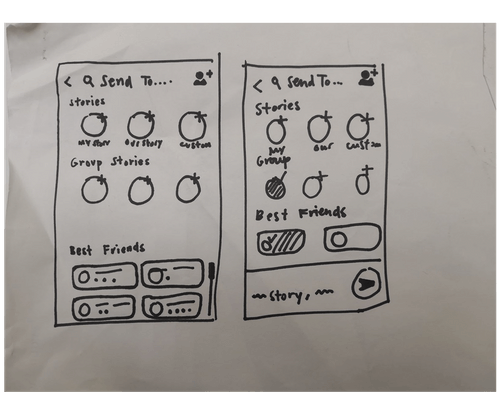 < Send To....
Stories
My story Our story Custom
Group Stories
Best Friends
< Send To...
Stories
My Our Custom
Group
Best Friends
story,